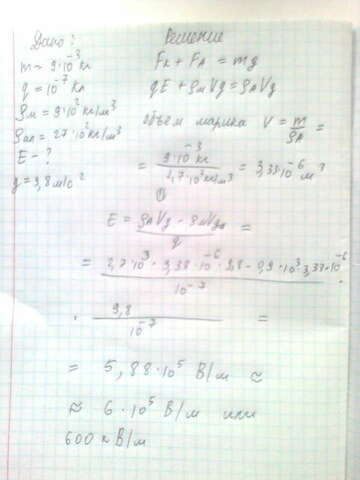 Дано:
m = 9·10⁻³ кг
q = 10⁻⁷ кл
ρм = 9·10² кг/м³
ρал = 27·10² кг/м³
E – ?
g = 9,8 м/с²
Решение
Fк + FА = mg
qE + ρмVg = ρАVg
объем шарика V = m/ρА =
= 9·10⁻³ кг / 2,7·10³ кг/м³ = 3,33·10⁻⁶ м³
E = ρАVg – ρмVg / q =
= 2,7·10³ · 3,33·10⁻⁶ · 9,8 – 0,9·10³ · 3,33·10⁻⁶ / 10⁻⁷ ·
· 9,8 / 10⁻⁷ =
= 5,88·10⁵ В/м ≈
≈ 6·10⁵ В/м или
600 кВ/м